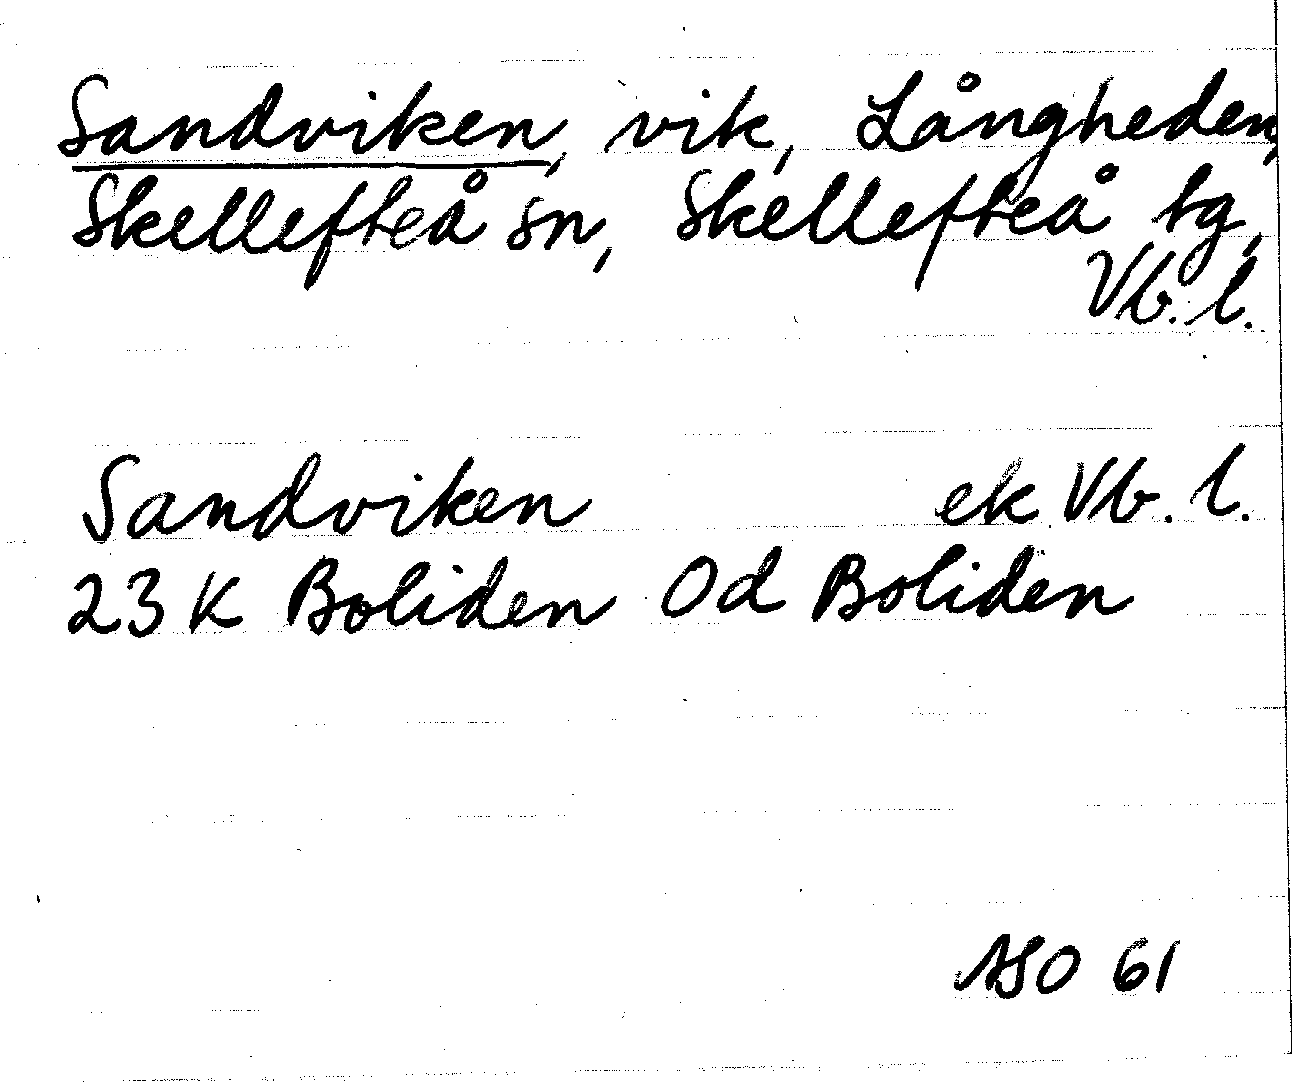 Sandviken, vik, Långheden,
Skellefteå sn, Skellefteå tg,
Vb. l.
Sandviken ek Vb. l.
23 K Boliden Od Boliden
ASO 61